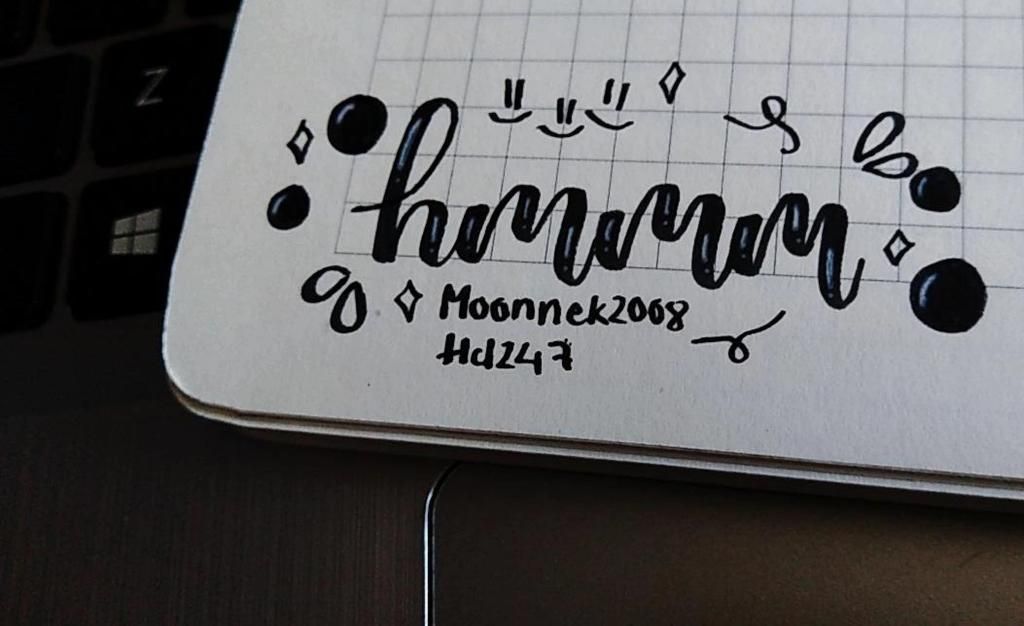 Z
hmmm
Moonnek2008
Hd247